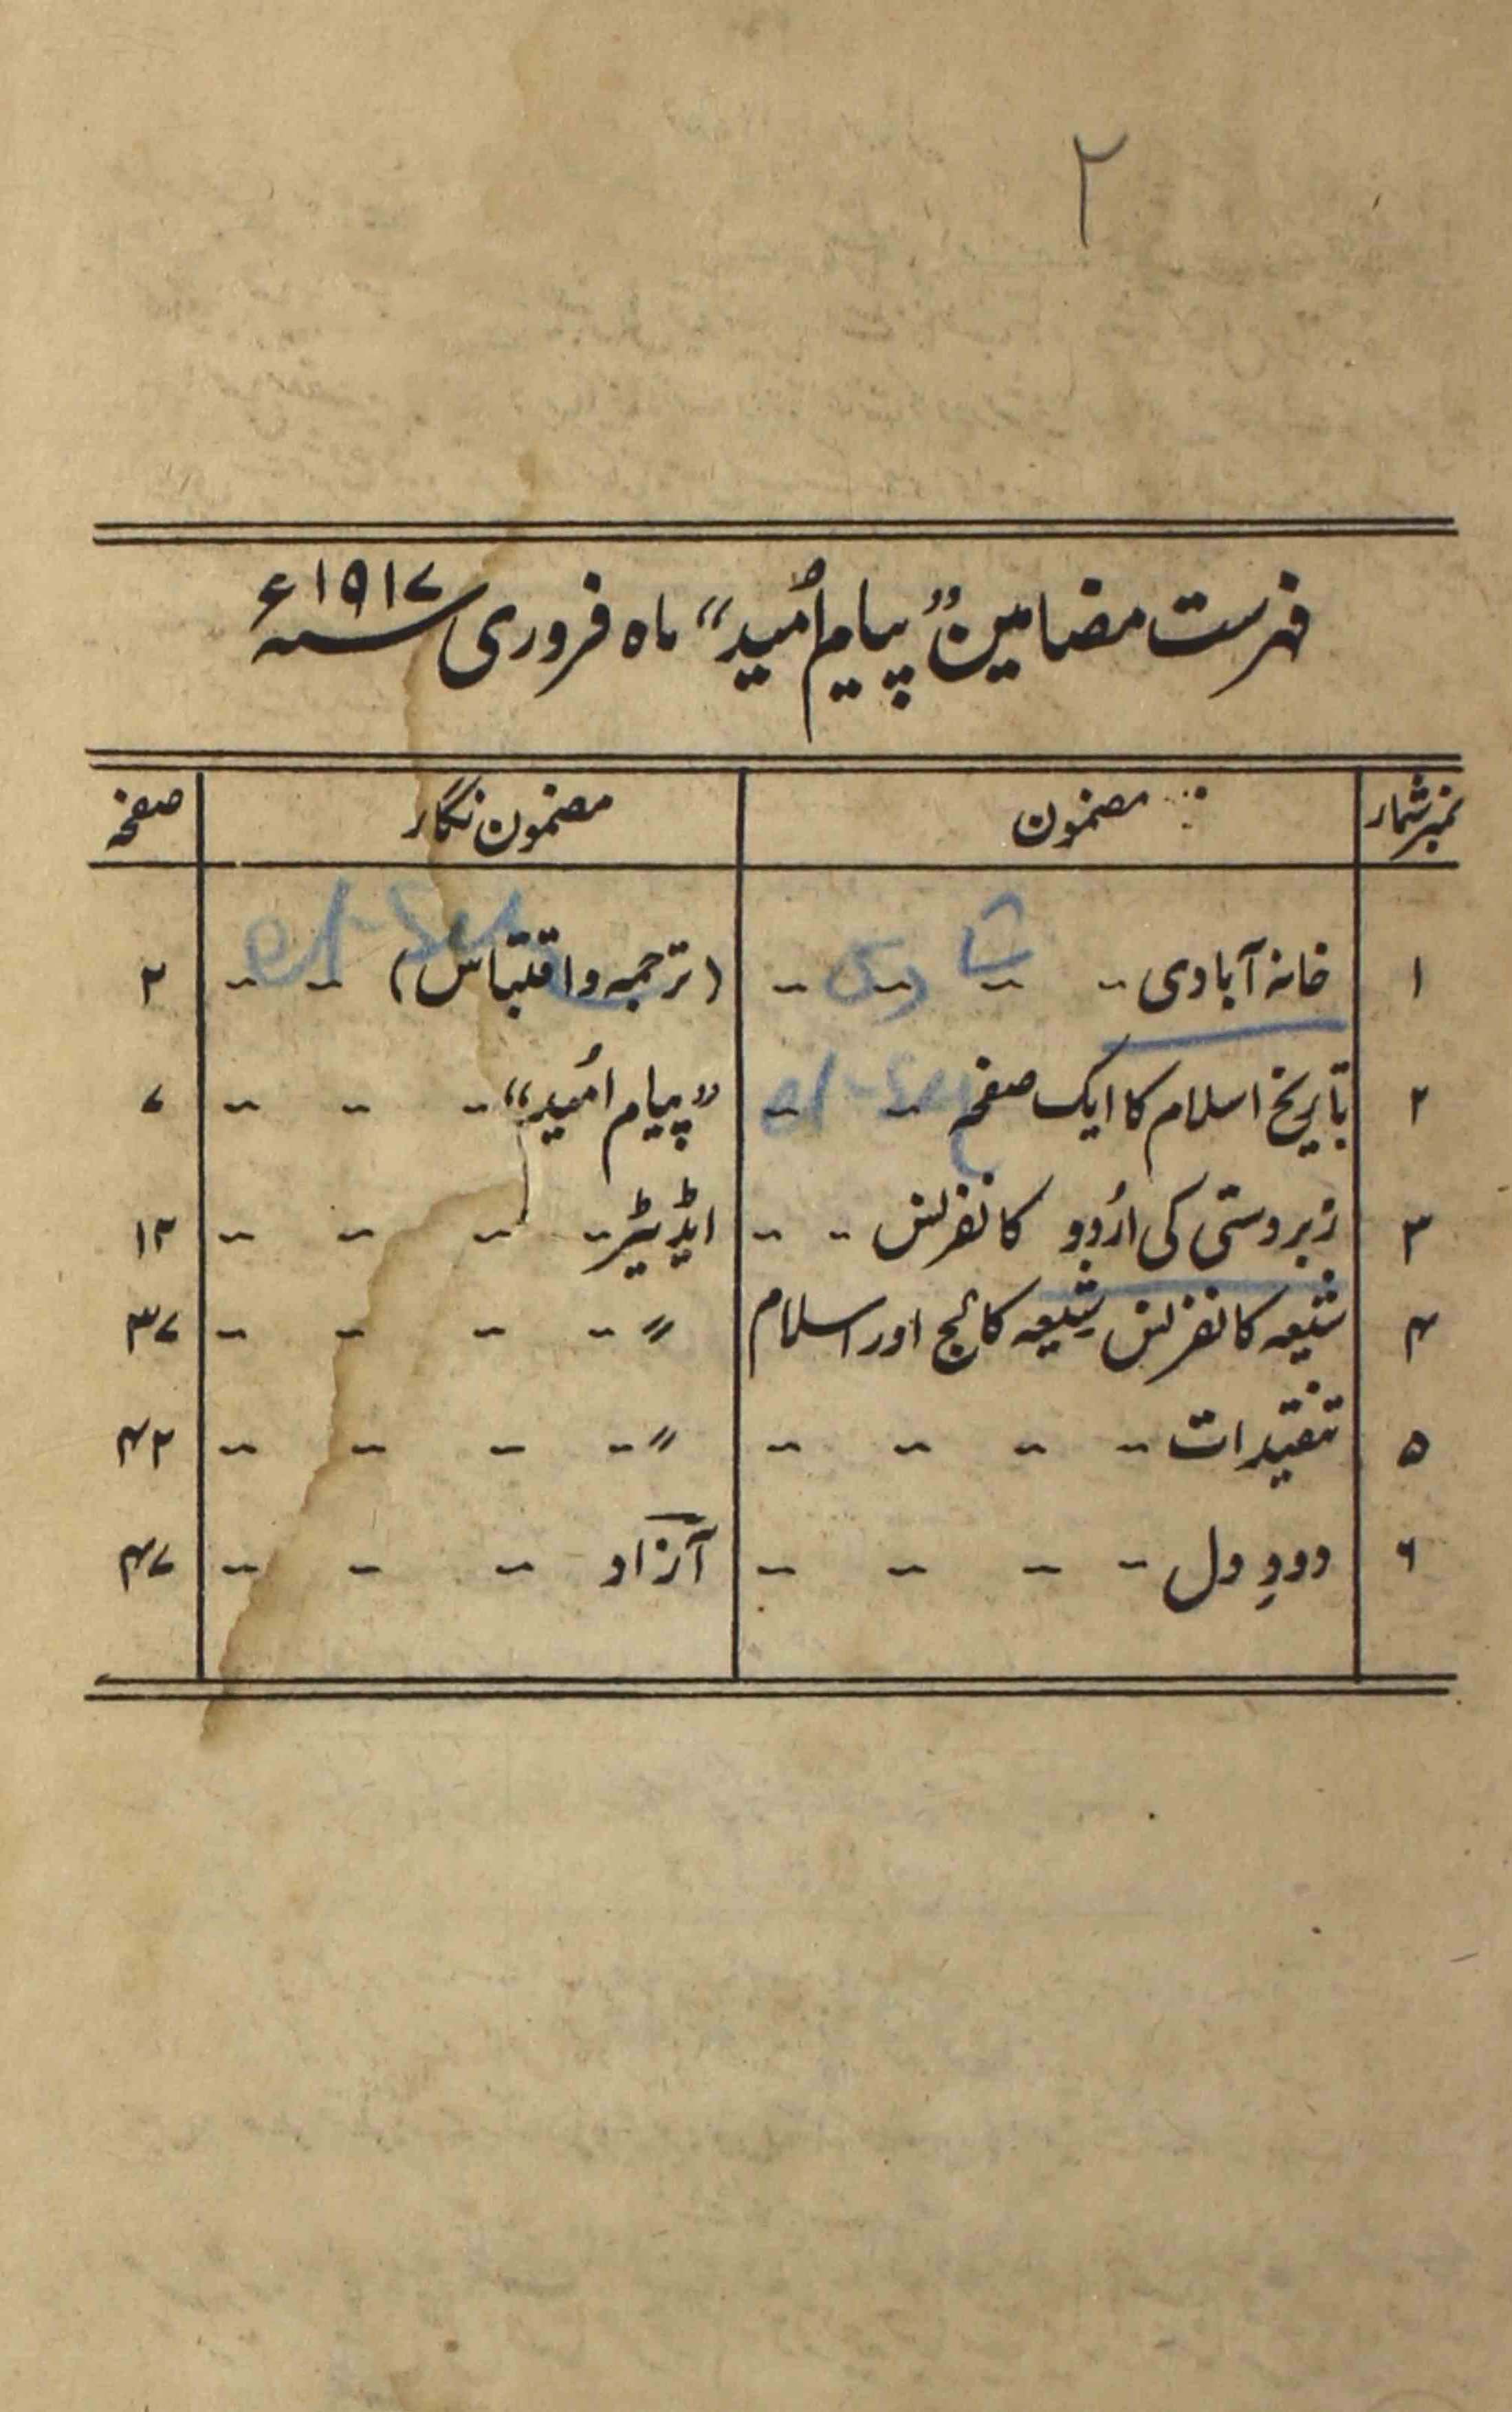 ۲
فہرست مضامین "پیام اُمید" ماہ فروری ۱۹۱۷ء
نمبر شمار مضمون مضمون نگار صفحہ
۱ خانہ آبادی - - - - (ترجمہ و اقتباس) - - ۲
۲ تاریخ اسلام کا ایک صفحہ - - "پیام اُمید" - - - ۷
۳ زبردستی کی اُردو کانفرنس - - ایڈیٹر - - - - ۱۲
۴ شیعہ کانفرنس شیعہ کالج اور اسلام 〃 - - - - ۳۷
۵ تنقیدات - - - - 〃 - - - - ۴۲
۶ دودِ دل - - - - آزاد - - - ۴۷